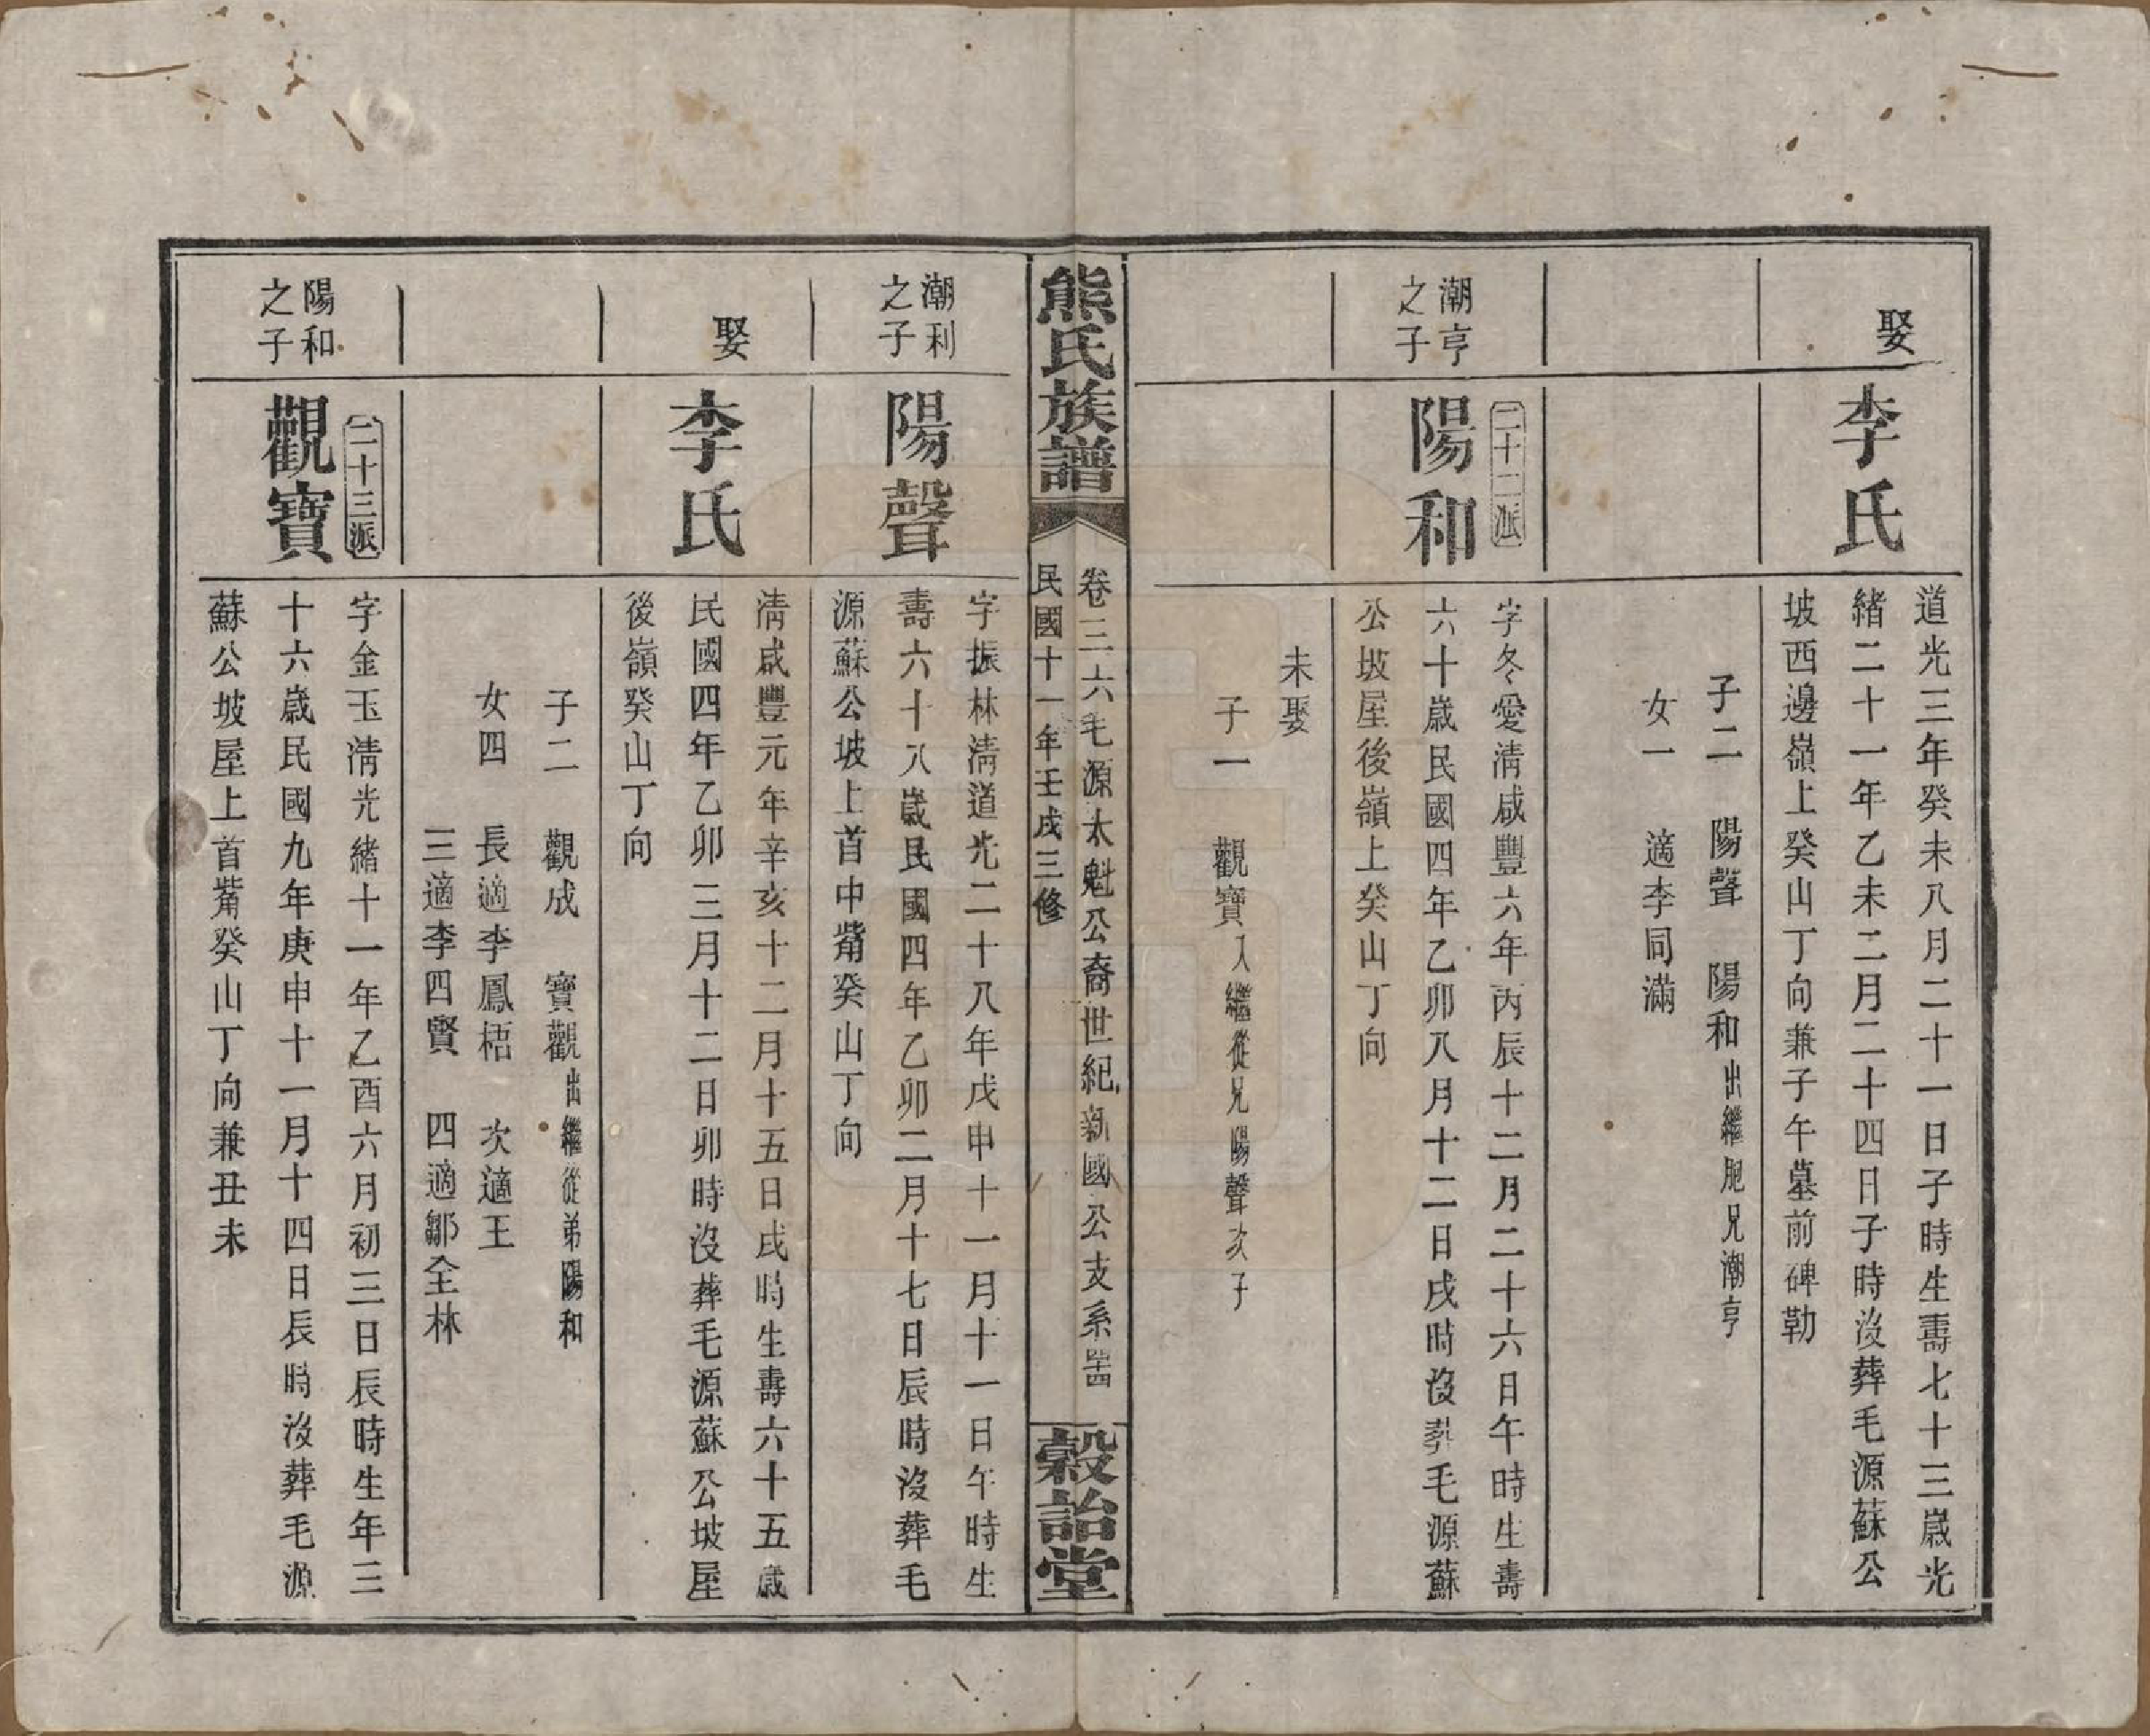 娶
李氏
道光三年癸未八月二十一日子時生壽七十三歲光
緒二十一年乙未二月二十四日子時沒葬毛源蘇公
坡西邊嶺上癸山丁向兼子午墓前碑勒
子二　陽聲　陽和出繼胞兄潮亨
女一　適李同滿
潮亨
之子
二十二派
陽和
字冬愛清咸豐六年丙辰十二月二十六日午時生壽
六十歲民國四年乙卯八月十二日戌時沒葬毛源蘇
公坡屋後嶺上癸山丁向
未娶
子一　觀寶入繼從兄陽聲次子
熊氏族譜
卷三六毛源太魁公裔世紀新國公支系
民國十一年壬戌三修
穀詒堂
潮利
之子
陽聲
字振林清道光二十八年戊申十一月十一日午時生
壽六十八歲民國四年乙卯二月十七日辰時沒葬毛
源蘇公坡上首中觜癸山丁向
娶
李氏
清咸豐元年辛亥十二月十五日戌時生壽六十五歲
民國四年乙卯三月十二日卯時沒葬毛源蘇公坡屋
後嶺癸山丁向
子二　觀成　寶觀出繼從弟陽和
女四　長適李鳳梧　次適王
三適李四賢　四適鄒全林
陽和
之子
二十三派
觀寶
字金玉清光緒十一年乙酉六月初三日辰時生年三
十六歲民國九年庚申十一月十四日辰時沒葬毛源
蘇公坡屋上首觜癸山丁向兼丑未